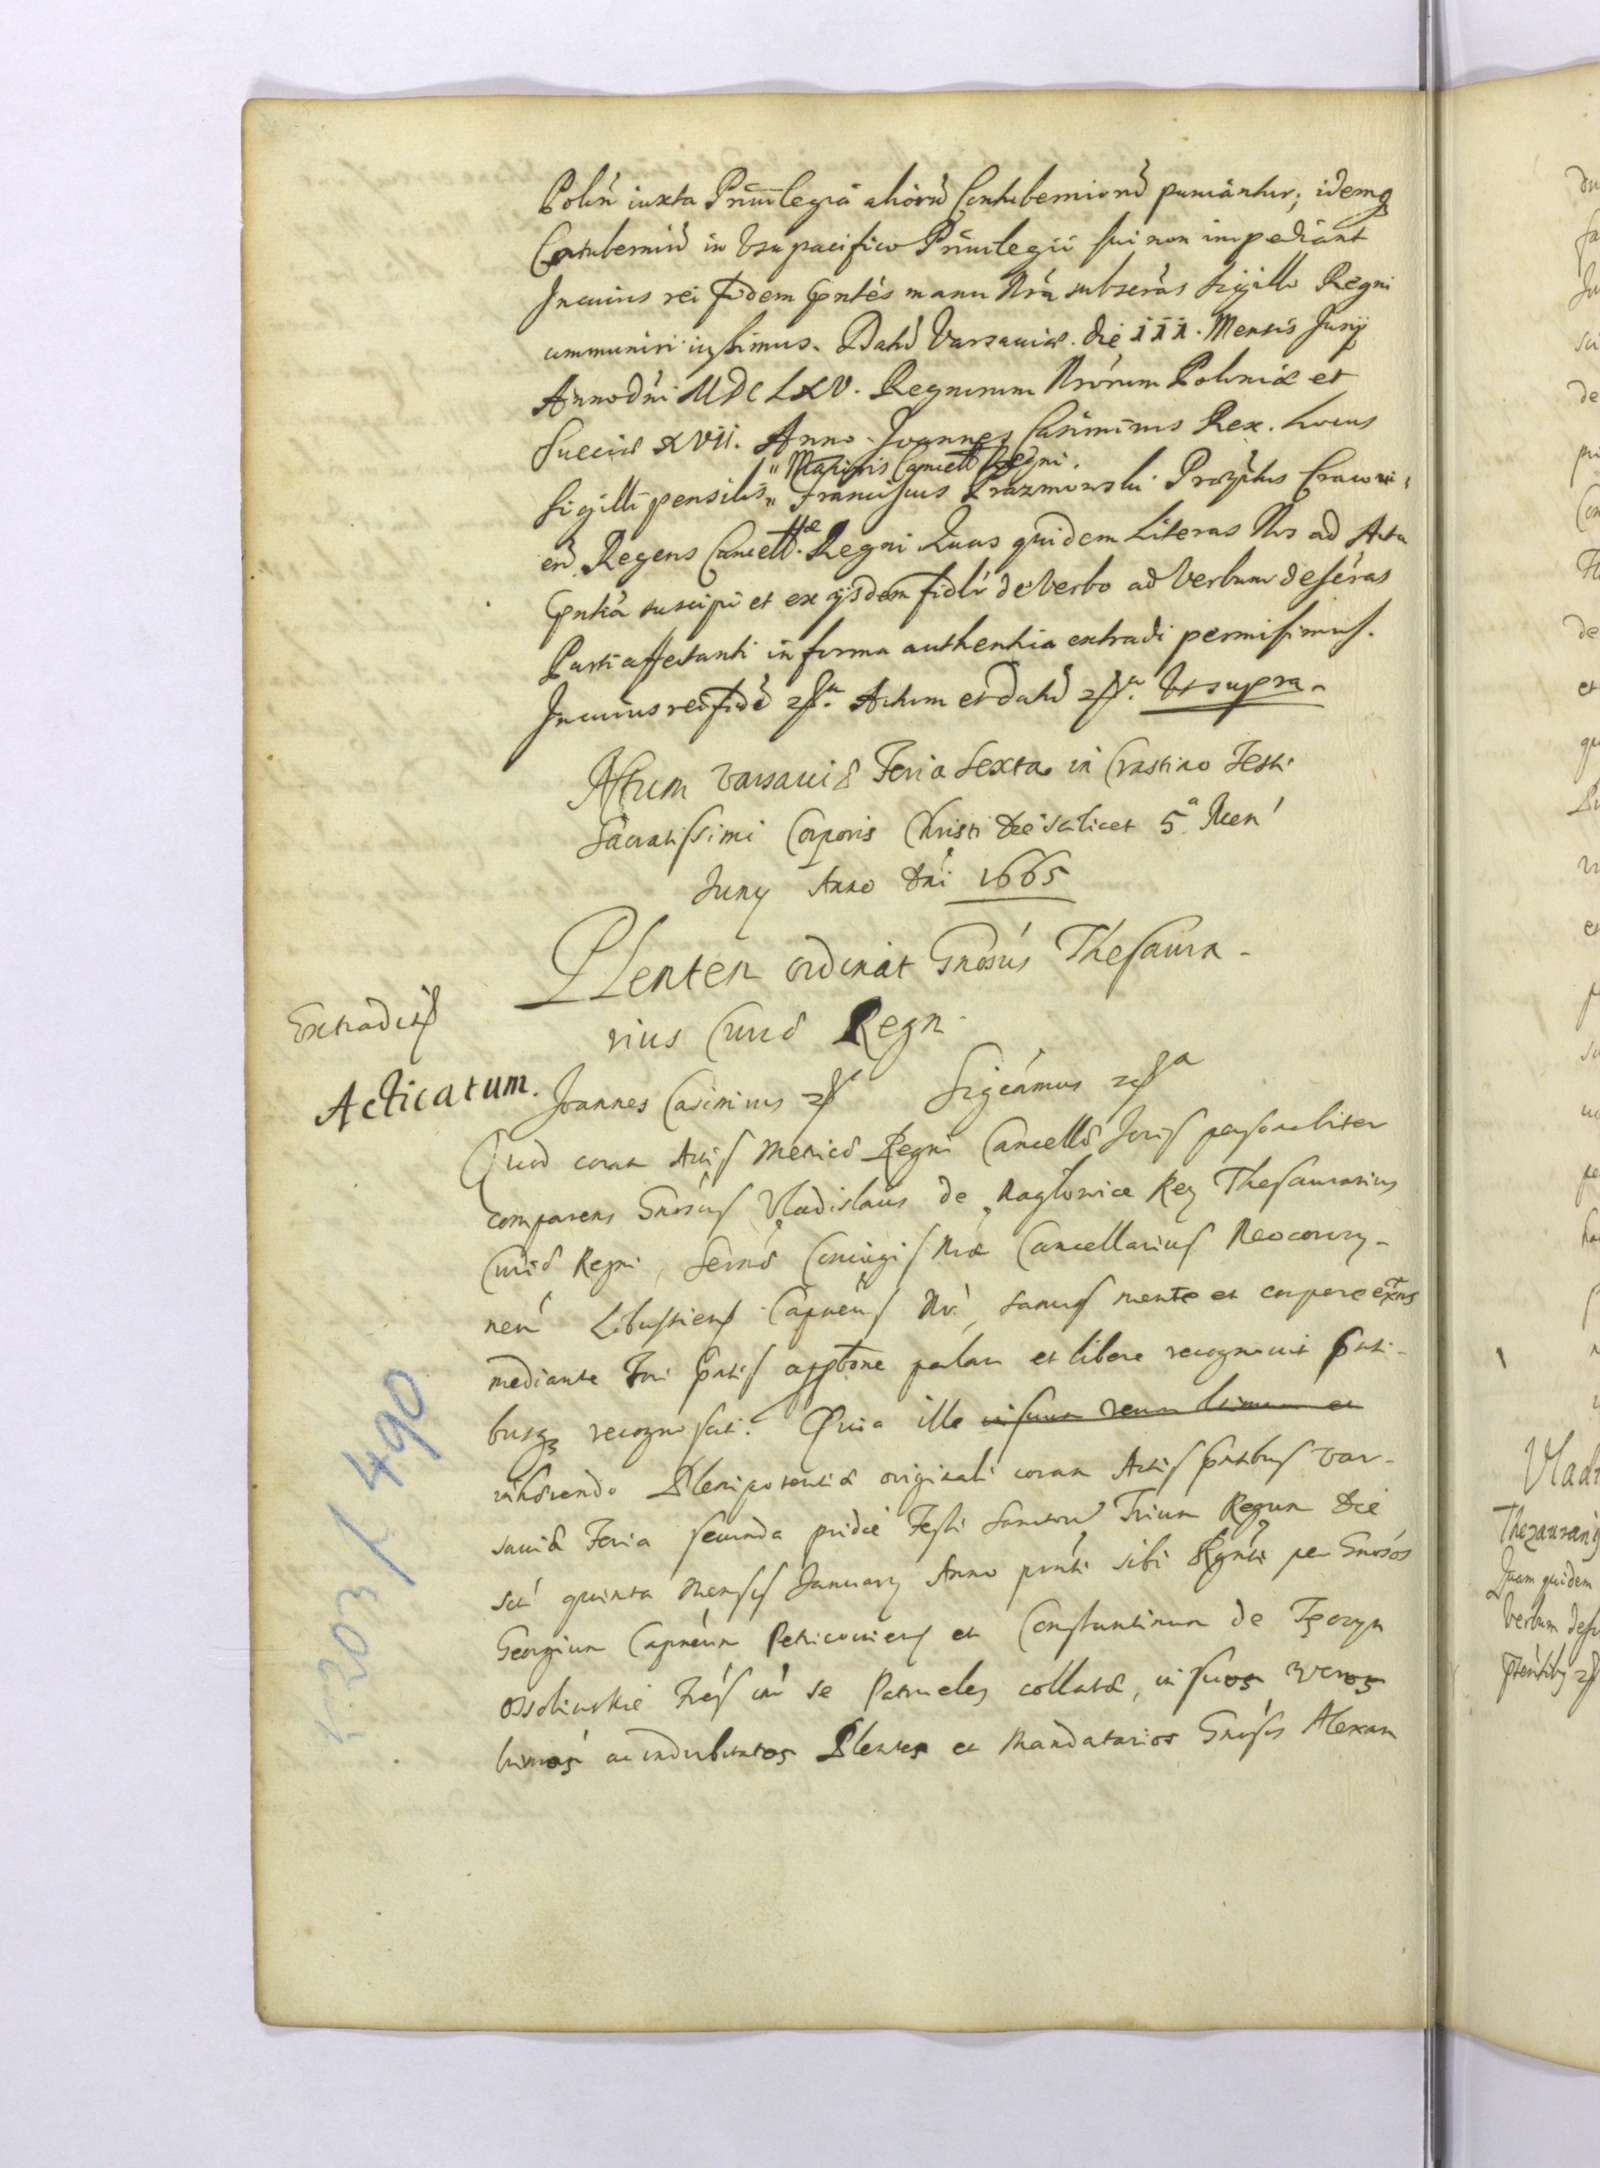 Polon̄ iuxta Priuilegia aliorū Contuberniorū puniantur; idemq
Contuberniū in Vsu pacifico Priuilegii sui non impediant
In cuius rei fidem Pn̄tes manu Nr̄a subscras Sigillo Regni
communiri iussimus. Datū Varsauiæ. die III. Mensis Junij
Anno dn̄i MDCLXV. Regnorum Nrorum Poloniæ et
Sueciæ XVII. Anno. Joannes Casimirus Rex. Locus
" Maioris Cancell Regni.
Sigilli pensilis " Franciscus Prazmowski Præptus Cracovi
en̄. Regens Cancellæ. Regni Quas quidem Literas Nrs ad Acta
Pn̄tia suscipi et ex ijsdem fidlr de Verbo ad Verbum descras
Parti affectanti in forma authentica extradi permisimus.
In cuius rei fidē &c. Actum et datū &c. Vt supra.
Actum Varsauiæ Feria Sexta in Crastino Festi
Sacratissimi Corporis Christi die scilicet 5a Men
Juny Anno Dni 1665
Plenten ordinat Gnosus Thesaura-
rius Curiæ Regn.
Extradit
Acticatum.
Joannes Casimirus &c Sigcamus &ca
Quod coram Actis Metrices Regni Cancellæ Joris personaliter
comparens Gnosus Vladislaus de Nagłowice Rey Thesaurarius
Curiæ Regni, Sernæ Coniugis Nræ Cancellarius Neocorczy-
nen Libusiens Capneus Nr, sanus mente et corpore extns
mediante Fori Pntis apptione palam et libere recognouit Pnti-
busq recognoscit. Quia ille in suum verum limum et
inhærendo Plenipotentiæ originali coram Actis Pntibus Var-
sauiæ Feria secunda pridie Festi Sanctorū Trium Regum Die
sct quinta Mensis January Anno prnti sibi per Gnosos
Georgium Capneum Petricoviens et Constantinum de Tęczyn
Ossolinskie Frēs in se Patrueles collatæ, in suos veros
limos ac indubitatos Plentes et Mandatarios Gnosos Alexan
V. 203 / 490
Vladi
Quam quidem